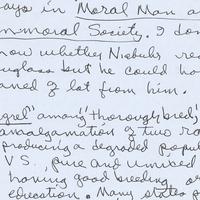 ays in "Moral Man a
mmoral Society. I don
now whether Niebuhr rea
uglass but he could ha
aned a lot from him.
grel" among "thorough bred,
amalgamation of two ra
producing a degraded popul
V.S. pure and unmixed
having good breeding or
education. Many states p